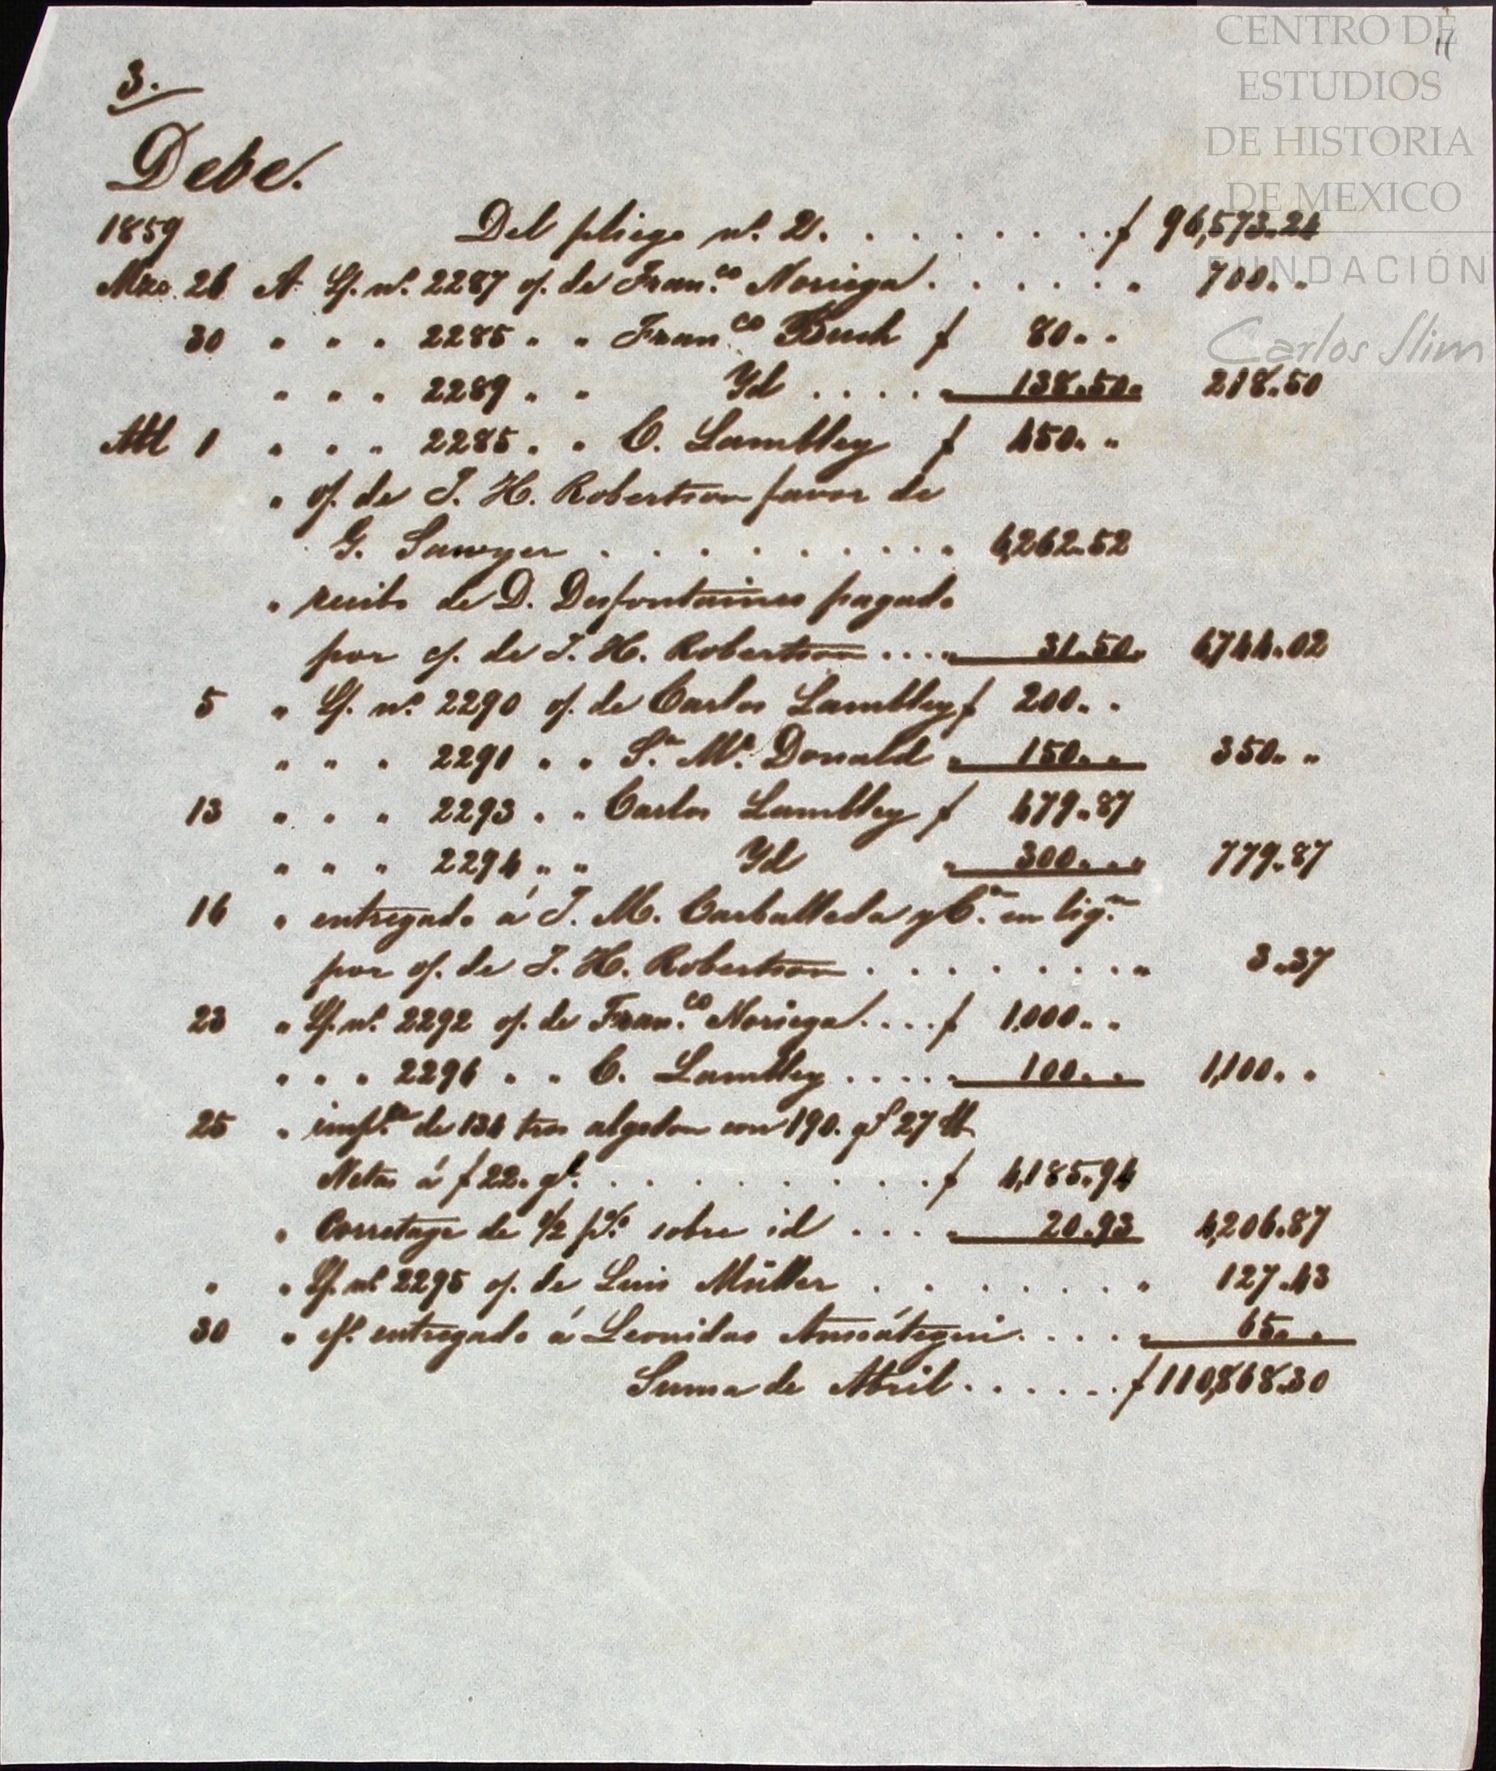 CENTRO DE
ESTUDIOS
DE HISTORIA
DE MEXICO
FUNDACIÓN
Carlos Slim
11
3.
Debe.
1859 Del pliego nº. 2. . . . . . . . . $ 96,573.24
Mzo. 26 A Lf. nº. 2287 of. de Fran.co Noriega . . . . . . " 700. "
30 " " " 2285 " " Fran.co Buch $ 80. "
" " " 2289 " " Yd . . . . " 138.50. 218.50
Abl 1 " " " 2285 " " C. Lambley $ 450. "
" of. de J. H. Robertson favor de
G. Sawyer . . . . . . . . . " 6,262.52
" recibo de D. Desfontaines pagado
por of. de J. H. Robertson . . . " 31.50. 6,744.02
5 " Lf. nº. 2290 of. de Carlos Lambley $ 200. "
" " " 2291 " " S. Mc. Donald " 150. " 350. "
13 " " " 2293 " " Carlos Lambley $ 479.87
" " " 2294 " " Yd " 300. " " 779.87
16 " entregado á J. M. Carballeda y Ca. en liqn.
por of. de J. H. Robertson . . . . . . . " 3.37
23 " Lf. nº. 2292 of. de Fran.co Noriega . . . . $ 1,000. "
" " " 2296 " " C. Lambley . . . . . " 100. " 1,100. "
25 " impte. de 134 tros algodon con 190. qs 27 lb
Netas á $ 22. ql. . . . . . . . . . . $ 4,185.94
" Corretage de 1/2 p% sobre id . . . " 20.93 4,206.87
" " Lf. nº 2295 of. de Luis Müller . . . . . . . " 127.43
30 " ef. entregado á Leonidas Amsátegui . . . . " 65. "
Suma de Abril . . . . . . $ 110,868.30